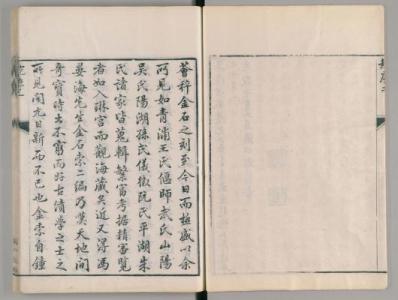 薈稡金石之刻至今日而極盛以余
所見如青浦王氏偃師武氏山陽
吳氏陽湖孫氏儀徵阮氏平湖朱
氏諸家皆蒐輯繁富考据精審覽
者如入琳宮而觀海藏矣近又得馮
晏海先生金石索二編乃嘆天地間
奇寶時出不窮而好古績學之士之
所見聞尤日新而不已也金索自鐘